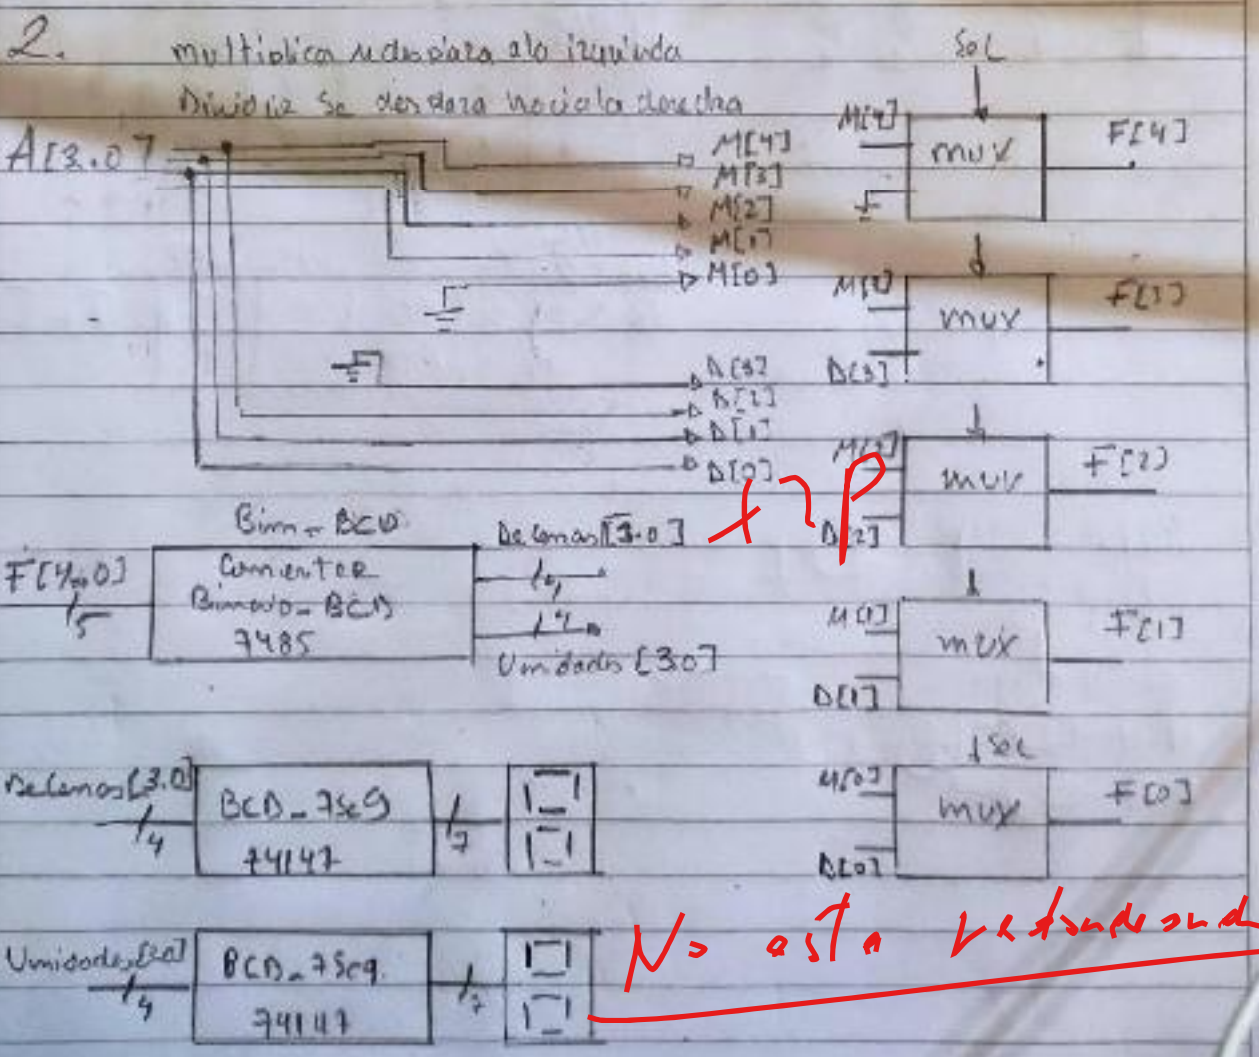 2.
multiplica se desplaza a la izquierda
Dividir se desplaza hacia la derecha
Sel
A[3.0]
M[4]
M[3]
M[2]
M[1]
M[0]
D[3]
D[2]
D[1]
D[0]
M[4]
mux
F[4]
M[3]
D[3]
mux
F[3]
M[2]
D[2]
mux
F[2]
M[1]
D[1]
mux
F[1]
Sel
M[0]
D[0]
mux
F[0]
Bin-BCD
F[4..0]
5
Binario-BCD
7485
Decenas[3.0]
4
4
Unidades[3.0]
Decenas[3.0]
4
BCD_7seg
74147
7
Unidades[3.0]
4
BCD_7seg.
74147
7
No esta